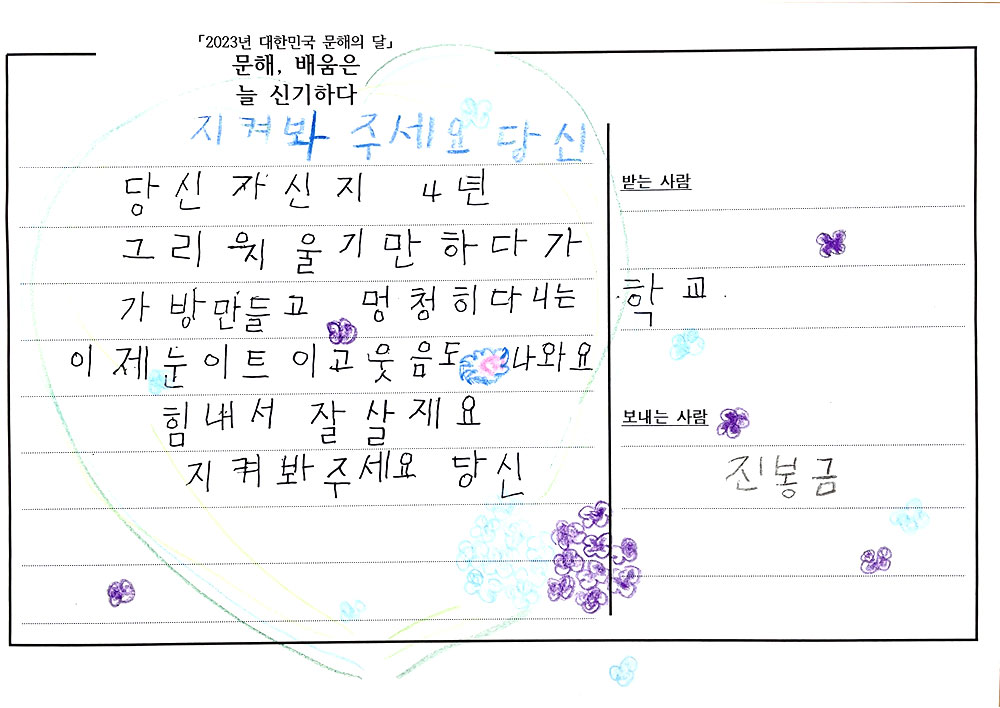 「2023년 대한민국 문해의 달」
문해, 배움은
늘 신기하다
지켜봐 주세요 당신
당신 가신지 4년
그리워 울기만하다가
가방만들고 멍청히다니는
이제눈이트이고웃음도 나와요
힘내서 잘살제요
지켜봐주세요 당신
받는 사람
학교
보내는 사람
진봉금